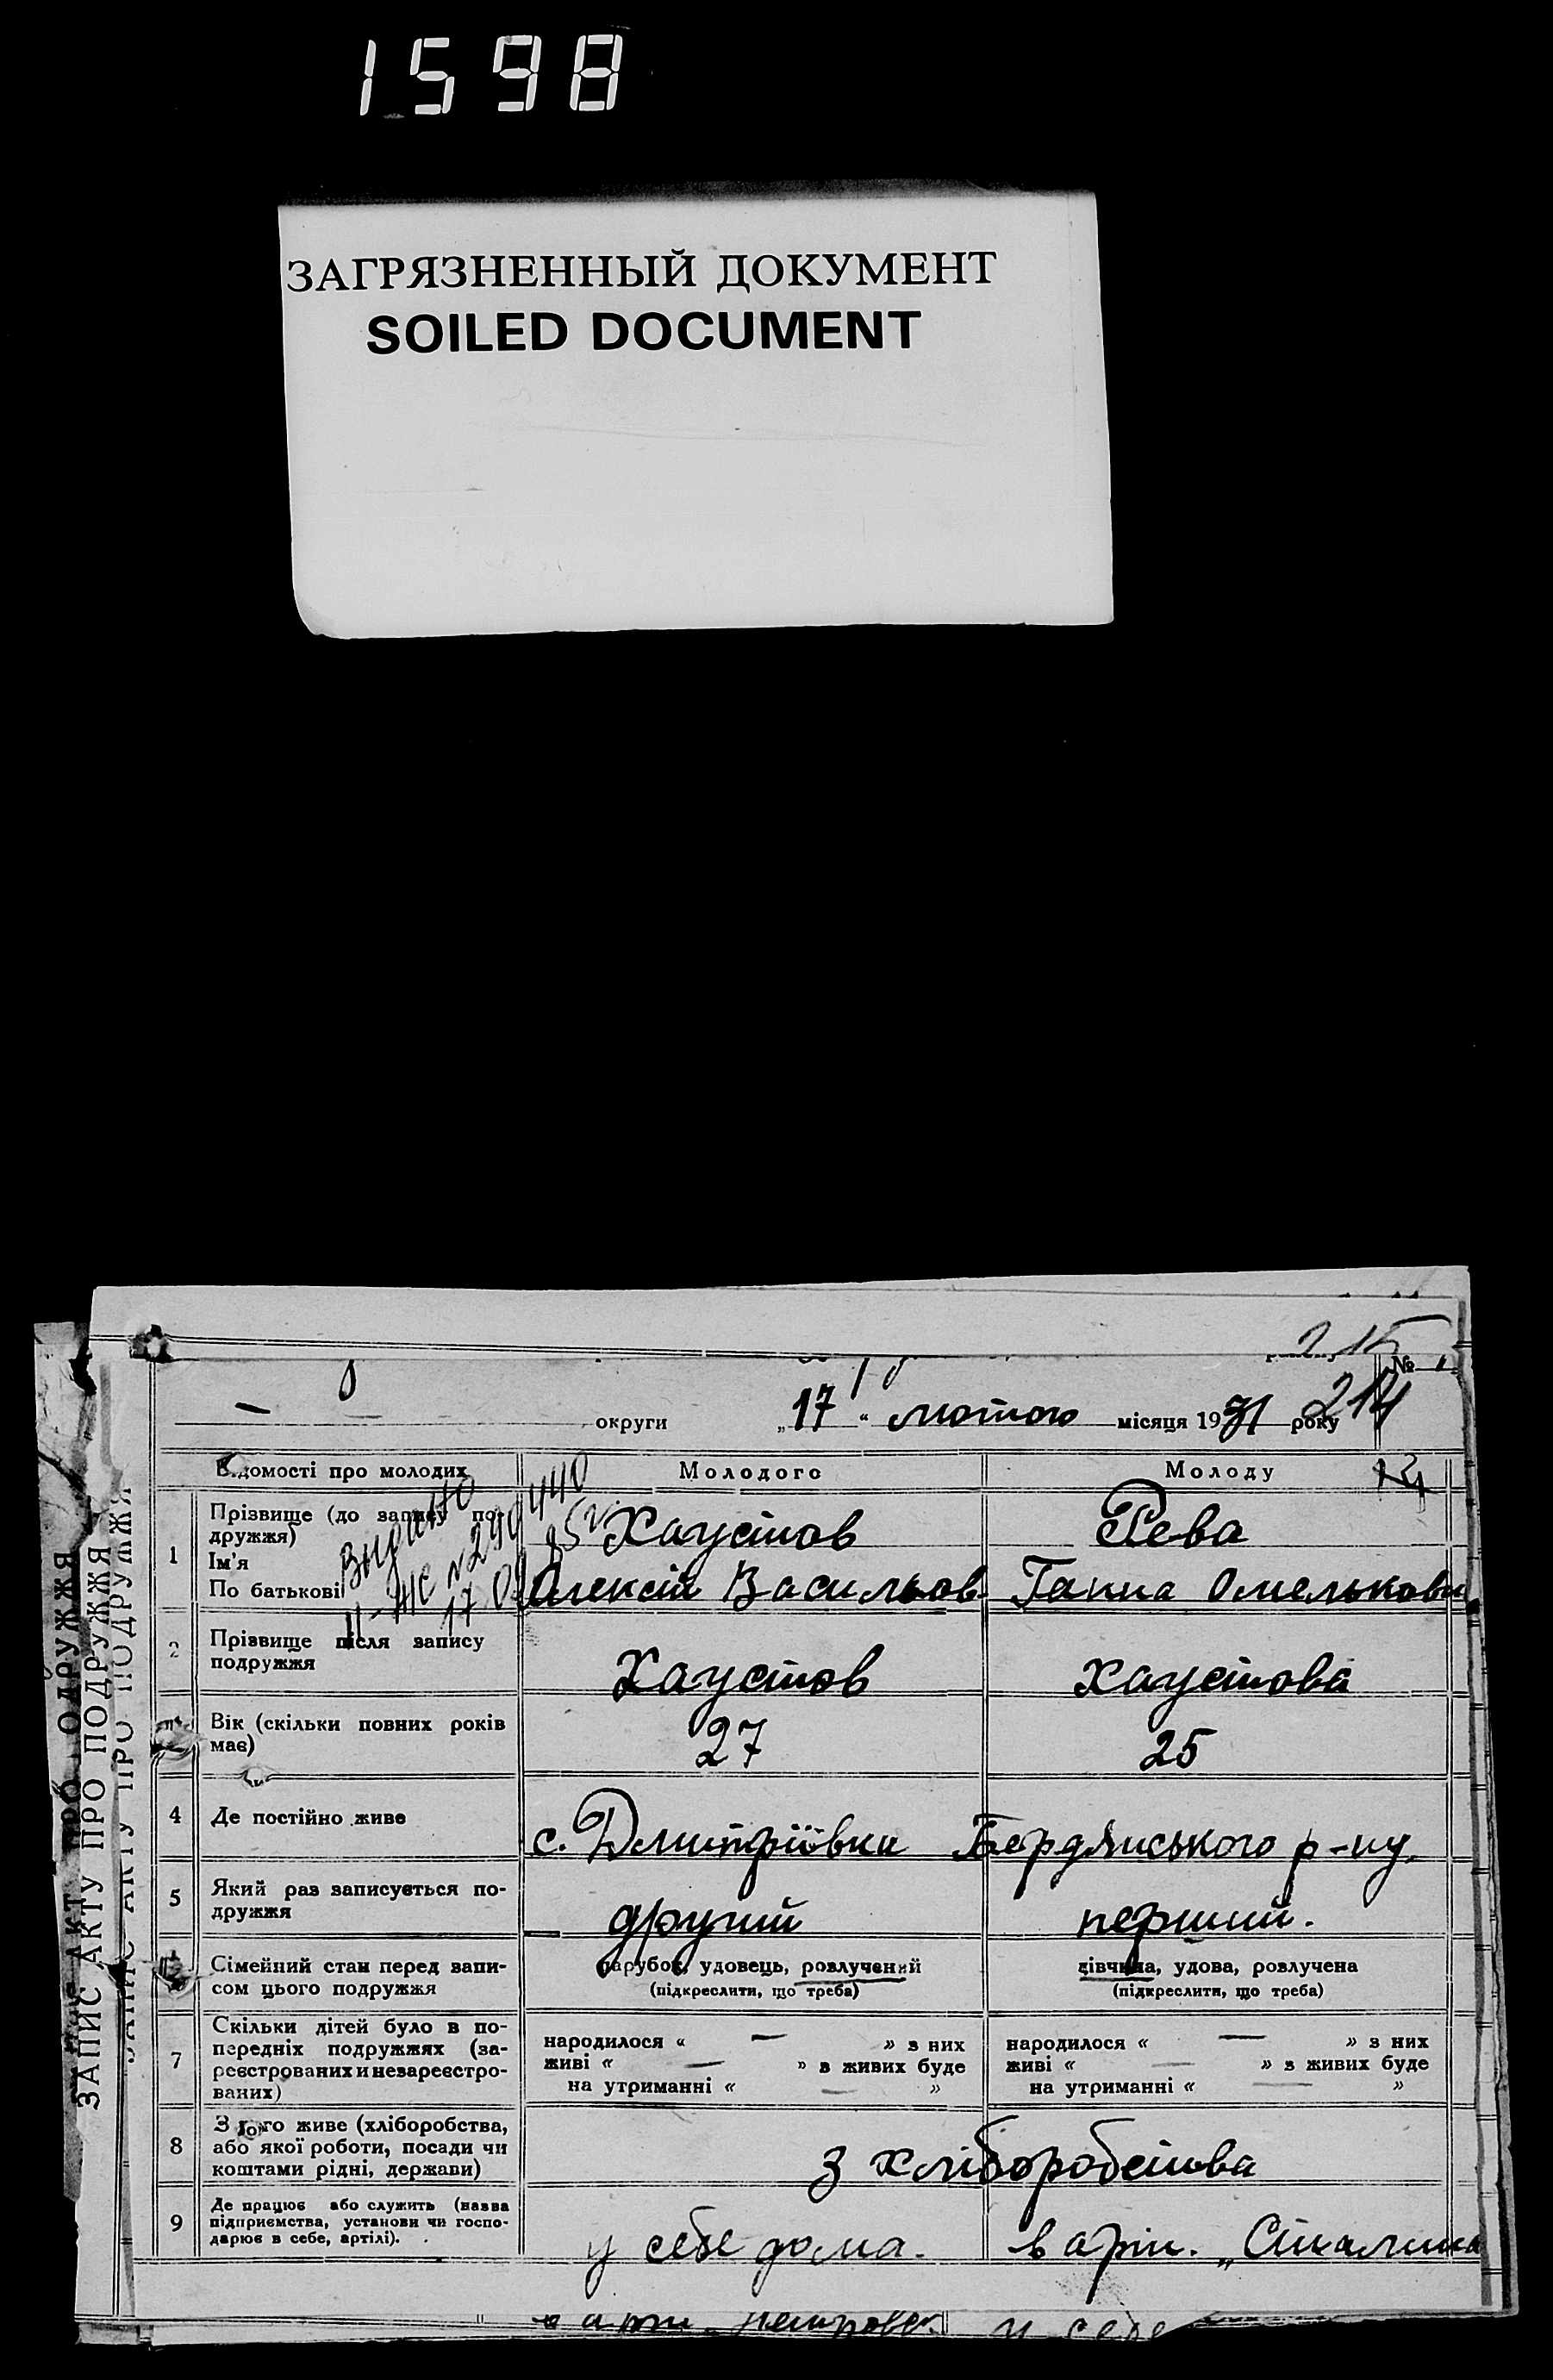 1598
ЗАГРЯЗНЕННЫЙ ДОКУМЕНТ
SOILED DOCUMENT
215
№
214
округи „17“ лютого місяця 1931 року
Відомості про молодих Молодого Молоду
24
1 Прізвище (до запису подружжя)
Ім'я
По батькові
Видано
II-ЖС №299440
17.01.85г.
Хаустов Рева
Олексій Васильов Ганна Омельковн
2 Прізвище після запису
подружжя
Хаустов Хаустова
Вік (скільки повних років
має)
27 25
4 Де постійно живе
с. Дмитріївки Бердянського р-ну.
5 Який раз записується по-
дружжя
другий перший.
Сімейний стан перед запи-
сом цього подружжя
парубок, удовець, розлучений
(підкреслити, що треба)
дівчина, удова, розлучена
(підкреслити, що треба)
7 Скільки дітей було в по-
передніх подружжях (за-
реєстрованих и незареєстро-
ваних)
народилося « — » з них
живі « — » з живих буде
на утриманні « — »
народилося « — » з них
живі « — » з живих буде
на утриманні « — »
8 З чого живе (хліборобства,
або якої роботи, посади чи
коштами рідні, держави)
з хліборобства
9 Де працює або служить (назва
підприємства, установи чи госпо-
дарює в себе, артілі).
у себе дома. в арт. „Сталина
ЗАПИС АКТУ ПРО ПОДРУЖЖЯ
ЗАПИС АКТУ ПРО ПОДРУЖЖЯ